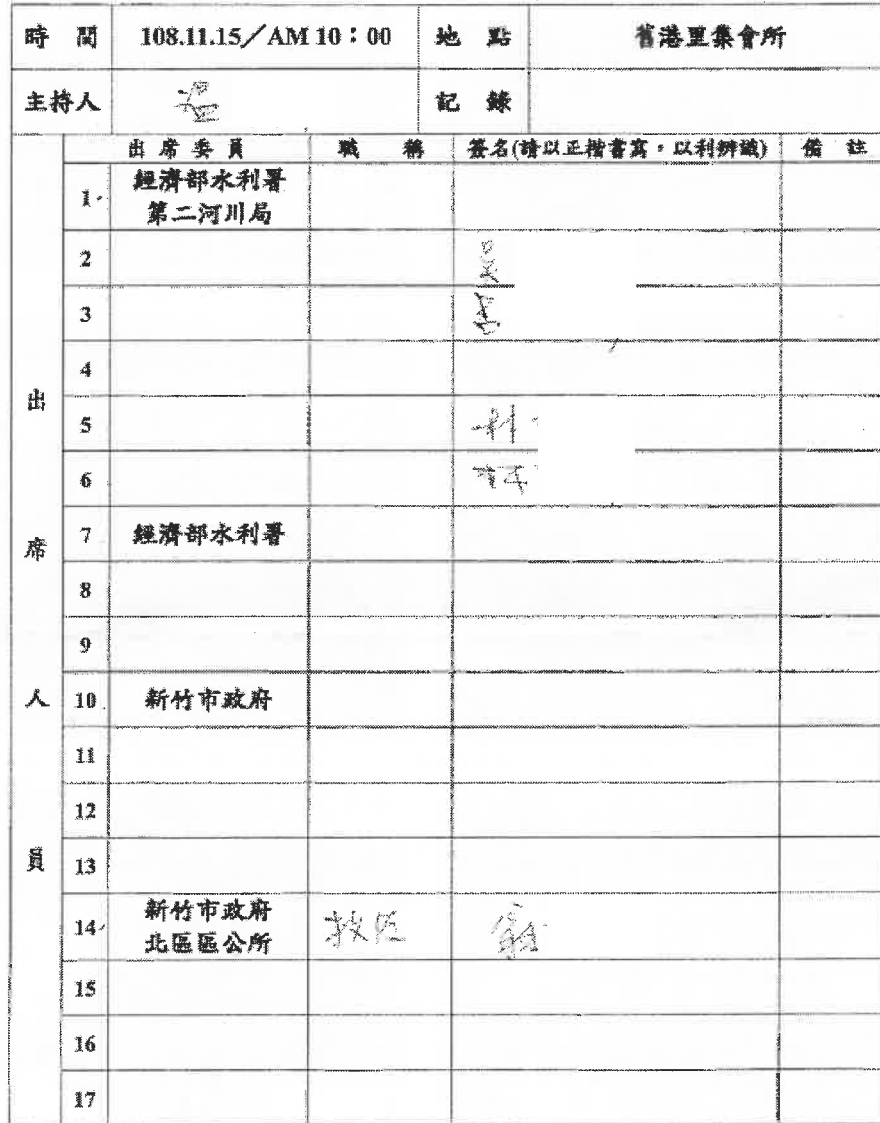 時 間 108.11.15／AM 10：00 地 點 舊港里集會所
主持人 記 錄
出席委員 職 稱 簽名(請以正楷書寫，以利辨識) 備 註
出席人員
1 經濟部水利署
第二河川局
2 吳
3 李
4
5
6
7 經濟部水利署
8
9
10 新竹市政府
11
12
13
14 新竹市政府
北區區公所
技佐
15
16
17